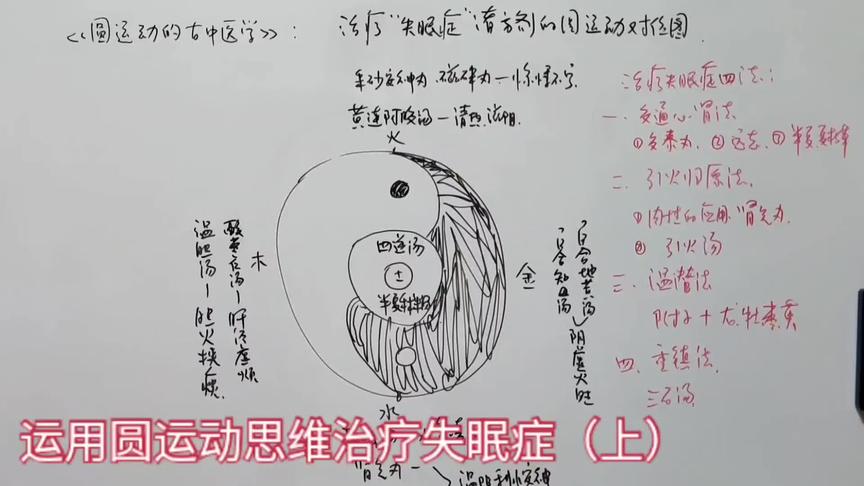 《圆运动的古中医学》:
治疗"失眠症"诸方剂的圆运动对位图
朱砂安神丸、磁砗丸一惊悸不宁
黄连阿胶汤一清热滋阴
火
四逆汤
土
半夏秫米汤
木
酸枣仁汤一肝经虚烦
温胆汤一胆火挟痰
金
百合地黄汤
百合知母汤
阴虚火旺
水
肾气丸一
温阳利水安神
治疗失眠症四法:
一、交通心肾法
①交泰丸、②远志、③半夏秫米
二、引火归原法
①肉桂的应用、肾气丸
② 引火汤
三、温潜法
附子+龙牡枣黄
四、重镇法
三石汤
运用圆运动思维治疗失眠症（上）